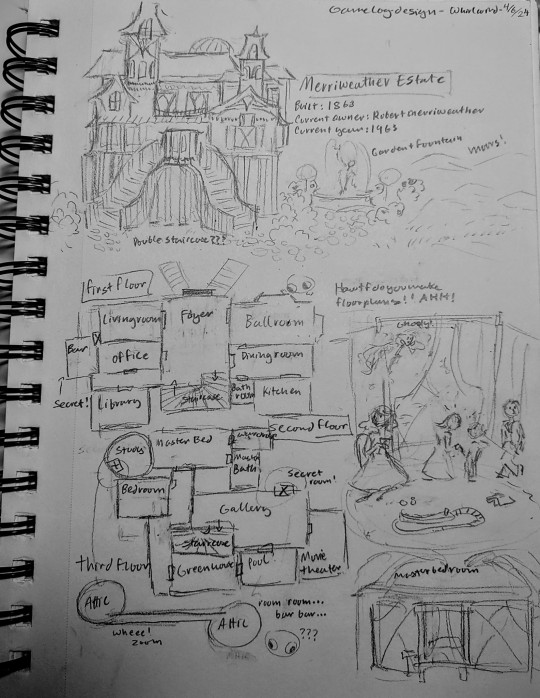 Gamelog design - Whirlwind - 4/6/24
Merriweather Estate
Built: 1863
Current owner: Robert Merriweather
Current year: 1963
Garden + Fountain
moors!
Double staircase???
first floor
Livingroom
Foyer
Ballroom
Bar
office
Diningroom
Secret!
Library
Staircase
Bath
room
Kitchen
How tf do you make
floorplans!! AHH!
Ghosty!
Second floor
Study
Master Bed
Master
Bath
Bedroom
Secret
room!
Gallery
Staircase
Third floor
Greenhouse
Pool
Movie
theater
Attic
Attic
wheee!
zoom
room room...
bar bar...
???
Master bedroom